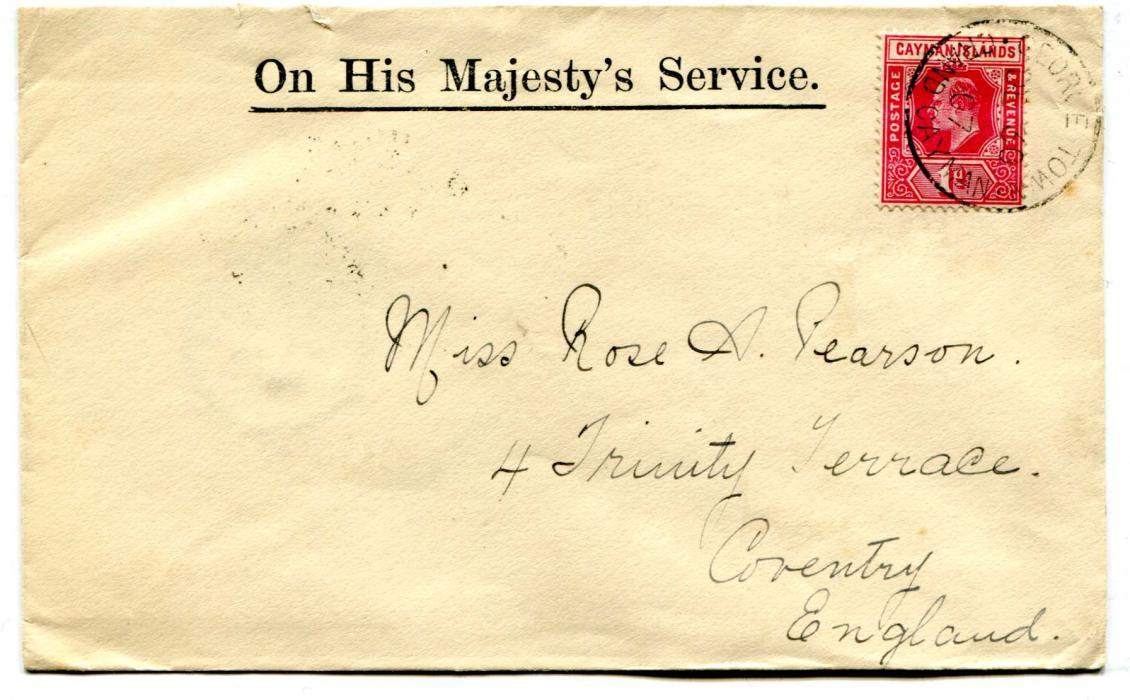 On His Majesty's Service.
CAYMAN ISLANDS
POSTAGE
& REVENUE
1d
GEORGE TOWN
GRAND CAYMAN
07
Miss Rose A. Pearson.
4 Trinity Terrace.
Coventry
England.